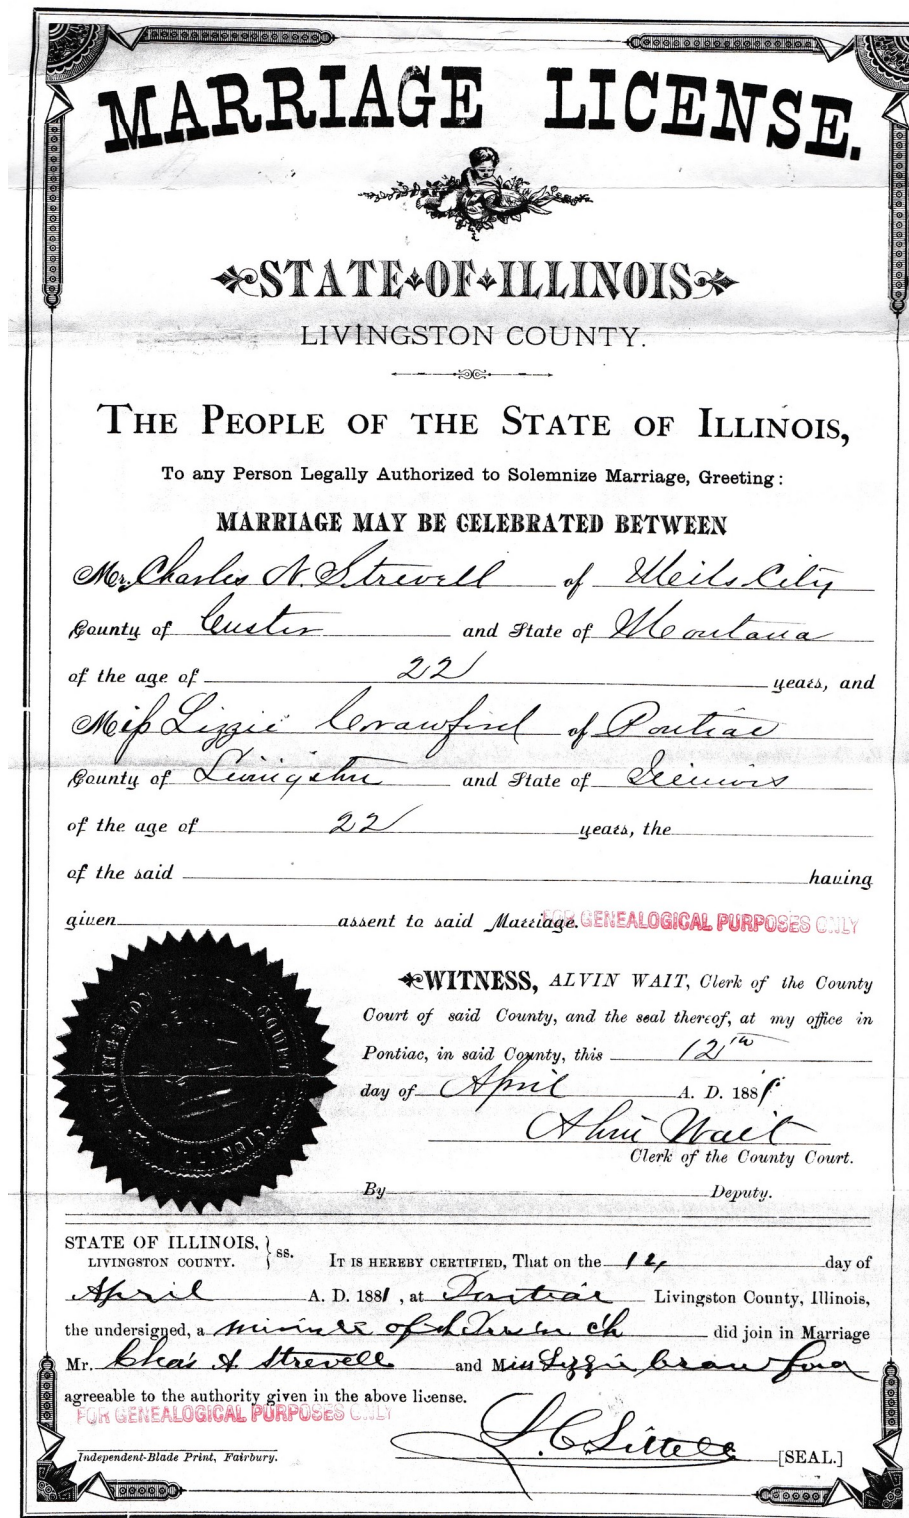 MARRIAGE LICENSE.
STATE OF ILLINOIS
LIVINGSTON COUNTY.
THE PEOPLE OF THE STATE OF ILLINOIS,
To any Person Legally Authorized to Solemnize Marriage, Greeting:
MARRIAGE MAY BE CELEBRATED BETWEEN
Mr. Charles N. Strevell of Meils City
County of Custer and State of Montana
of the age of 22 years, and
Miss Lizzie Crawford of Pontiac
County of Livingston and State of Illinois
of the age of 22 years, the
of the said having
given assent to said Marriage. FOR GENEALOGICAL PURPOSES ONLY
WITNESS, ALVIN WAIT, Clerk of the County
Court of said County, and the seal thereof, at my office in
Pontiac, in said County, this 12th
day of April A. D. 1881
Alvin Wait
Clerk of the County Court.
By Deputy.
STATE OF ILLINOIS,
LIVINGSTON COUNTY. } ss. IT IS HEREBY CERTIFIED, That on the 12, day of
April A. D. 1881, at Pontiac Livingston County, Illinois,
the undersigned, a of ch did join in Marriage
Mr. Chas N. Strevell and Miss Lizzie Crawford
agreeable to the authority given in the above license.
FOR GENEALOGICAL PURPOSES ONLY
L. C. Littell
Independent-Blade Print, Fairbury. [SEAL.]